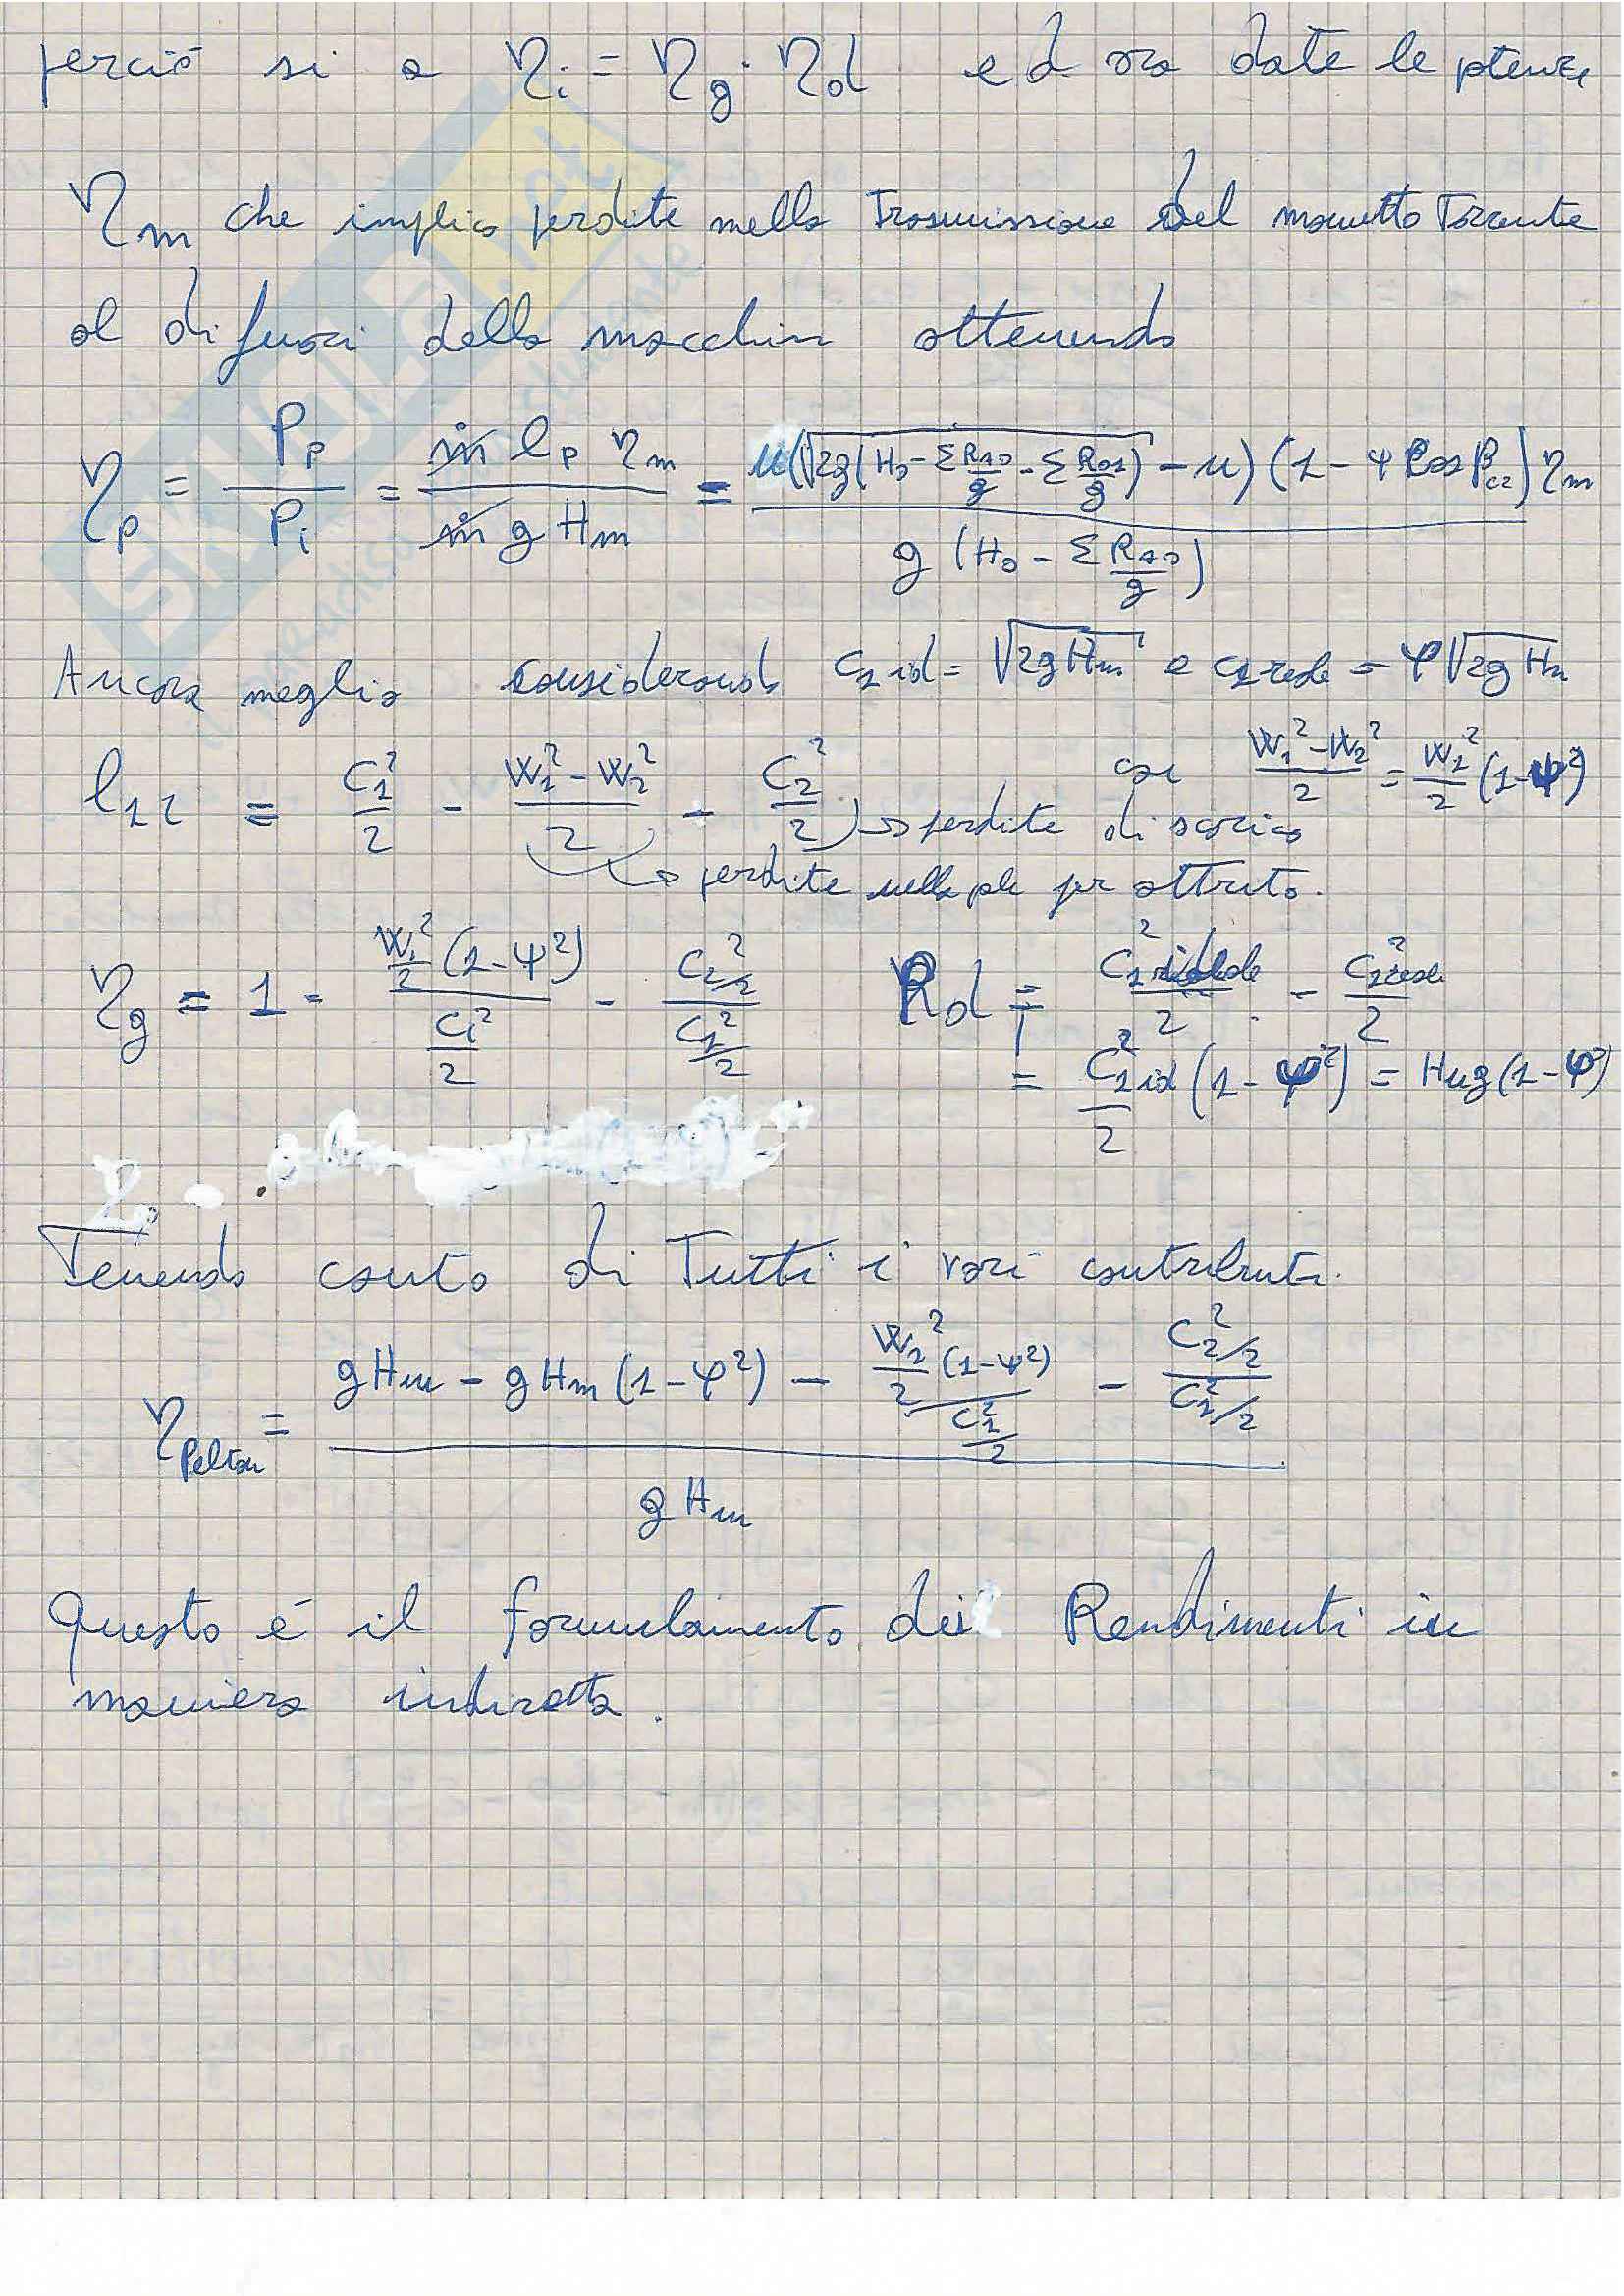 perciò si a η_i = η_g · η_d ed ora date le ptenze
η_m che implica perdite nella Trasmissione del momento Torcente
al di fuori della macchin ottenendo
η_p = P_p / P_i = ṁ l_p η_m / ṁ g H_m = u(√(2g(H_0 - Σ R_A0/g - Σ R_01/g)) - u)(1 - ψ cos β_c2) η_m / g (H_0 - Σ R_A0/g)
Ancora meglio considerando C_1 id = √(2gH_m) e c_1 reale = φ√(2gH_m)
l_12 = C_1²/2 - (W_1² - W_2²)/2 - C_2²/2 → perdite di scarico con (W_1² - W_2²)/2 = W_1²/2 (1-ψ²)
→ perdite nelle pale per attrito.
η_g = 1 - (W_1²/2 (1-ψ²)) / (C_1²/2) - (C_2²/2) / (C_1²/2) R_d = C_1²ideale/2 - C_1²reale/2
= C_1²id/2 (1-φ²) = H_m g (1-φ²)
Tenendo conto di Tutti i vari contributi.
η_Pelton = (gH_m - gH_m (1-φ²) - (W_1²/2 (1-ψ²)) / (C_1²/2) - (C_2²/2) / (C_1²/2)) / gH_m
Questo è il formulamento dei Rendimenti in
maniera indiretta.
SKUOLA.net